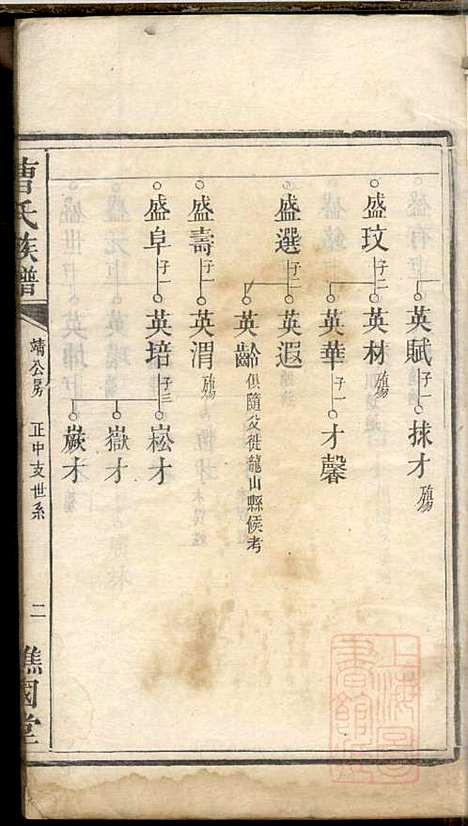 英賦子一
抹才殤
盛玟子二
英材殤
英華子一
才馨
盛選子二
英遐
英齡俱隨父徙龍山縣候考
盛壽子一
英渭殤
盛阜子一
英培子三
崧才
嶽才
嶡才
曹氏族譜
靖公房
正中支世系
二
譙國堂
上海圖書館藏